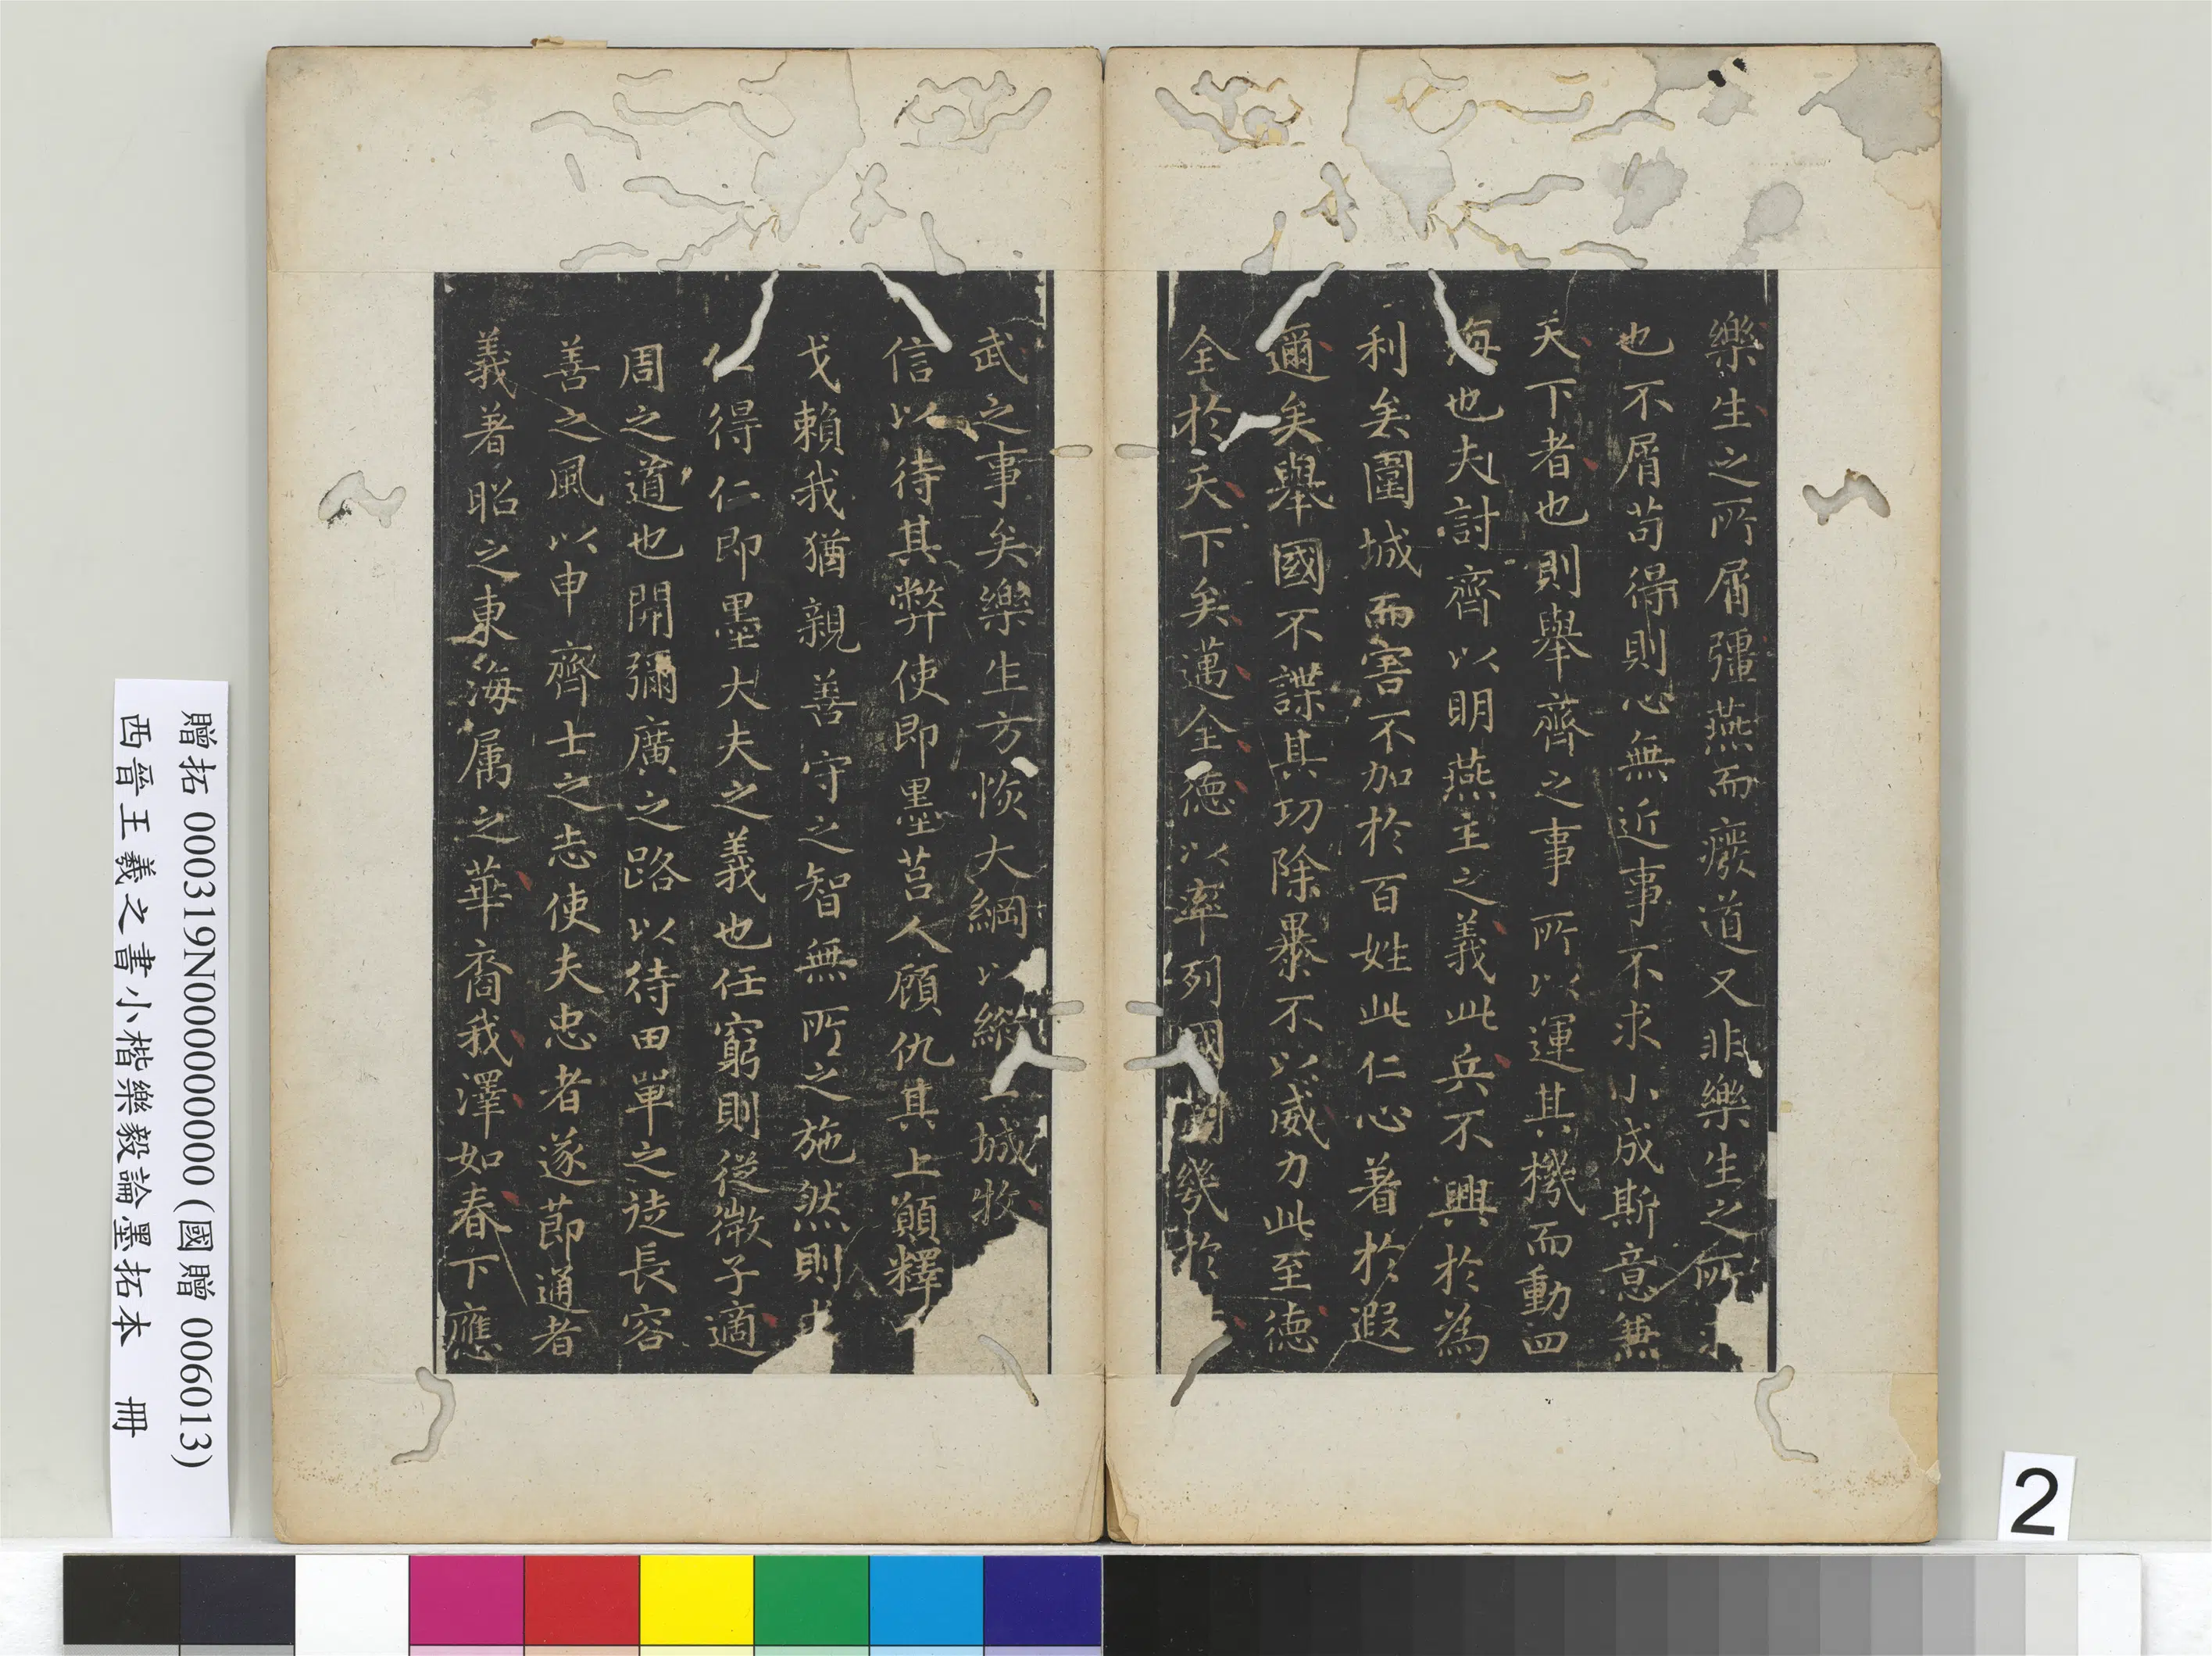 樂生之所屑彊燕而癈道又非樂生之所求
也不屑苟得則心無近事不求小成斯意兼
天下者也則舉齊之事所以運其機而動四
海也夫討齊以明燕主之義此兵不興於為
利矣圍城而害不加於百姓此仁心著於遐
邇矣舉國不謀其功除暴不以威力此至德
全於天下矣邁全德以率列國則幾於
武之事矣樂生方恢大綱以縱二城牧
信以待其弊使即墨莒人顧仇其上願釋
戈賴我猶親善守之智無所之施然則求
仁得仁即墨大夫之義也任窮則從微子適
周之道也開彌廣之路以待田單之徒長容
善之風以申齊士之志使夫忠者遂節通者
義著昭之東海属之華裔我澤如春下應
贈拓 000319N000000000 (國贈 006013)
西晉王羲之書小楷樂毅論墨拓本 冊
2